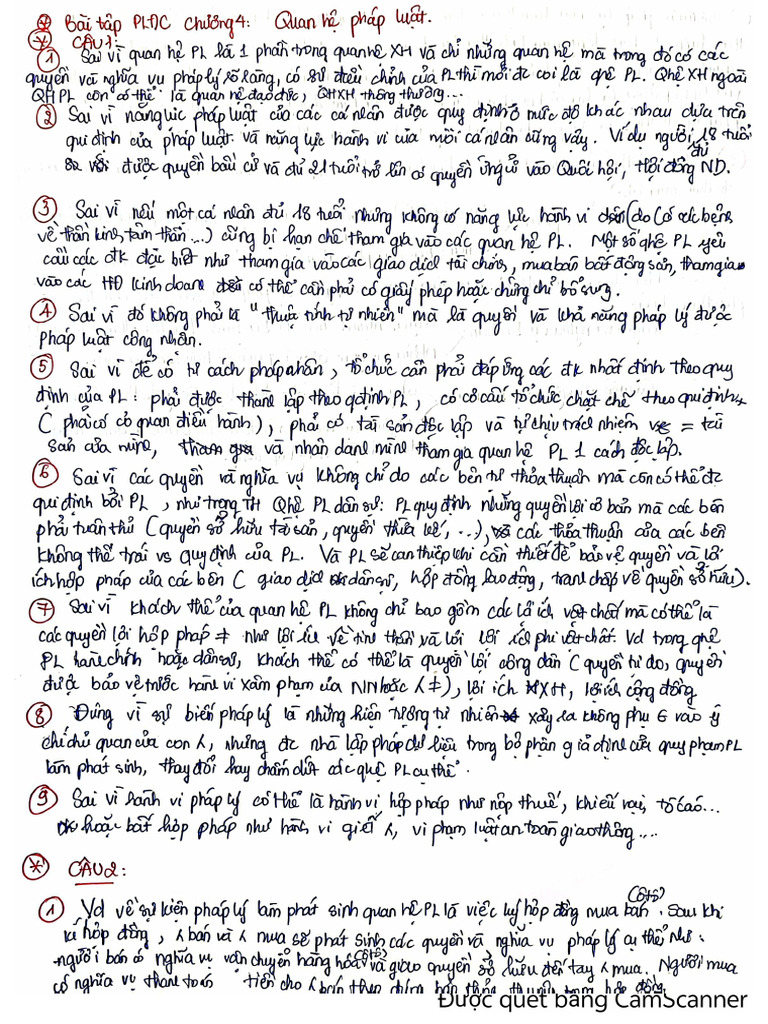 * Bài tập PLĐC chương 4: Quan hệ pháp luật.
* CÂU 1:
① Sai vì quan hệ PL là 1 phần trong quan hệ XH và chỉ những quan hệ mà trong đó có các
quyền và nghĩa vụ pháp lý rõ ràng, có sự điều chỉnh của PL thì mới đc coi là qhệ PL. Qhệ XH ngoài
QHPL còn có thể là quan hệ đạo đức, QHXH thông thường...
② Sai vì năng lực pháp luật của các cá nhân được quy định ở mức độ khác nhau dựa trên
qui định của pháp luật và năng lực hành vi của mỗi cá nhân cũng vậy. Ví dụ người đủ 18 tuổi
được quyền bầu cử và đủ 21 tuổi trở lên có quyền ứng cử vào Quốc hội, Hội đồng ND.
③ Sai vì nếu một cá nhân đủ 18 tuổi nhưng không có năng lực hành vi dsự (do có các bệnh
về thần kinh, tâm thần...) cũng bị hạn chế tham gia vào các quan hệ PL. Một số qhệ PL yêu
cầu các đk đặc biệt như tham gia vào các giao dịch tài chính, mua bán bất động sản, tham gia
vào các HĐ kinh doanh có thể cần phải có giấy phép hoặc chứng chỉ bổ sung.
④ Sai vì đó không phải là "thuộc tính tự nhiên" mà là quyền và khả năng pháp lý được
pháp luật công nhận.
⑤ Sai vì để có tư cách pháp nhân, tổ chức cần phải đáp ứng các đk nhất định theo quy
định của PL: phải được thành lập theo qđịnh PL, có cơ cấu tổ chức chặt chẽ theo qui định
(phải có cơ quan điều hành), phải có tài sản độc lập và tự chịu trách nhiệm = tài
sản của mình, và nhân danh mình tham gia quan hệ PL 1 cách độc lập.
⑥ Sai vì các quyền và nghĩa vụ không chỉ do các bên tự thỏa thuận mà còn có thể đc
qui định bởi PL, như trong TH Qhệ PL dân sự: PL quy định những quyền lợi cơ bản mà các bên
phải tuân thủ (quyền sở hữu tài sản, quyền thừa kế, ...), các thỏa thuận của các bên
không thể trái vs quy định của PL. Và PL sẽ can thiệp khi cần thiết để bảo vệ quyền và lợi
ích hợp pháp của các bên (giao dịch dân sự, hợp đồng lao động, tranh chấp về quyền sở hữu).
⑦ Sai vì khách thể của quan hệ PL không chỉ bao gồm các lợi ích vật chất mà có thể là
các quyền lợi hợp pháp ≠ như lợi ích về tinh thần và lợi ích phi vật chất. Vd trong qhệ
PL hành chính hoặc dân sự, khách thể có thể là quyền lợi công dân (quyền tự do, quyền
được bảo vệ trước hành vi xâm phạm của NN hoặc ≠), lợi ích XH, lợi ích cộng đồng
⑧ Đúng vì sự biến pháp lý là những hiện tượng tự nhiên xảy ra không phụ ∈ vào ý
chí chủ quan của con , nhưng đc nhà lập pháp dự liệu trong bộ phận giả định của quy phạm PL
làm phát sinh, thay đổi hay chấm dứt các qhệ PL cụ thể.
⑨ Sai vì hành vi pháp lý có thể là hành vi hợp pháp như nộp thuế, khiếu nại, tố cáo...
hoặc bất hợp pháp như hành vi giết , vi phạm luật an toàn giao thông....
* CÂU 2:
① Vd về sự kiện pháp lý làm phát sinh quan hệ PL là việc ký hợp đồng mua bán (ôtô). Sau khi
kí hợp đồng, bán và mua sẽ phát sinh các quyền và nghĩa vụ pháp lý cụ thể như:
người bán có nghĩa vụ vận chuyển hàng hóa (ôtô) và giao quyền sở hữu đến tay mua. Người mua
có nghĩa vụ thanh toán tiền cho bán theo
Được quét bằng CamScanner